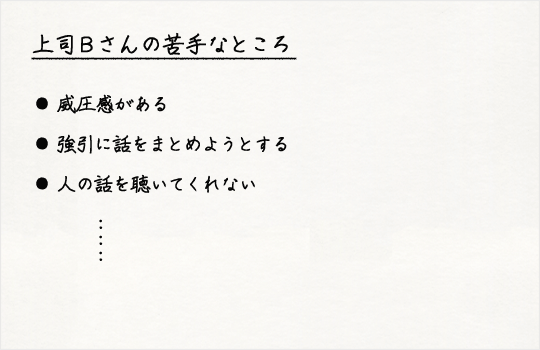 上司Bさんの苦手なところ
● 威圧感がある
● 強引に話をまとめようとする
● 人の話を聴いてくれない
⋮